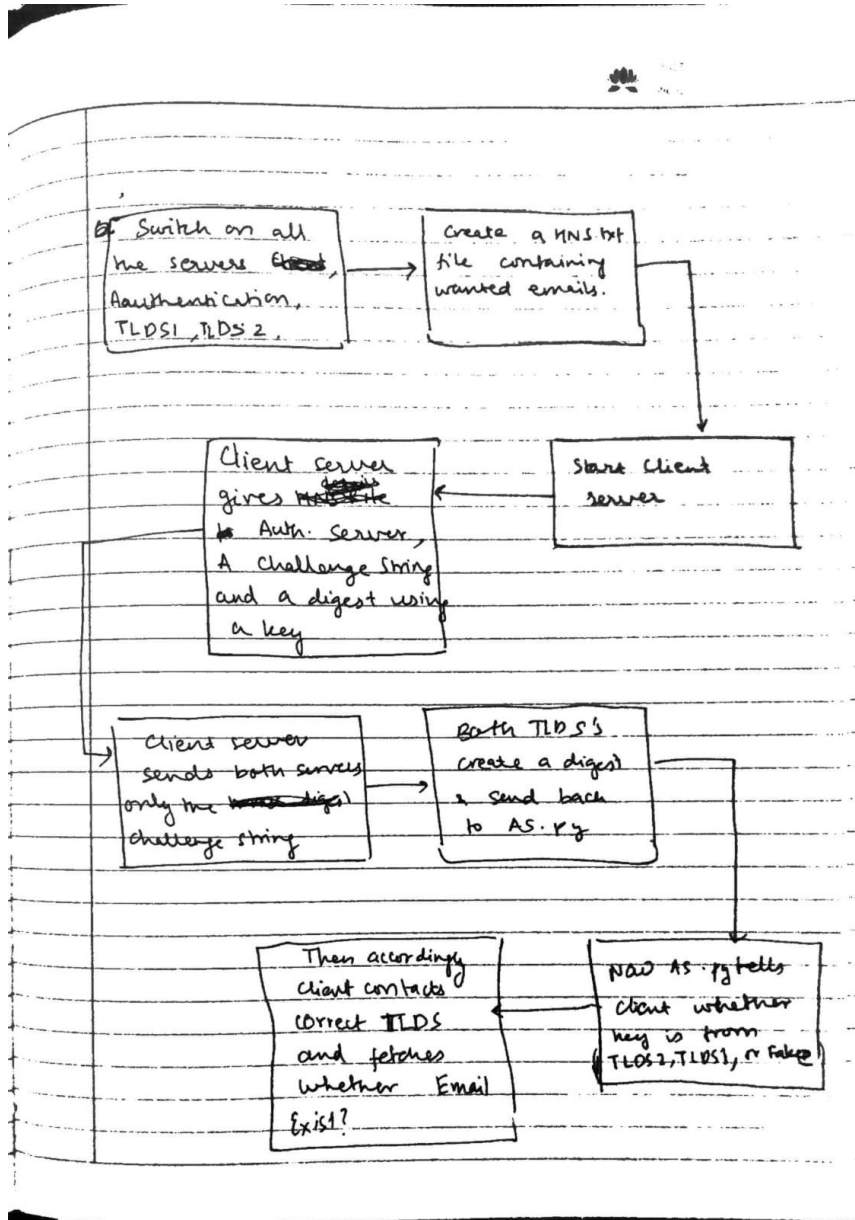 Switch on all
the servers,
Aauthentication,
TLDS1, TLDS2,
Create a HNS.txt
file containing
wanted emails.
Start Client
server
Client server
gives details
Auth. Server,
A challenge string
and a digest using
a key
Client server
sends both servers
only the
challenge string
Both TLDS's
create a digest
& send back
to AS.py
Now AS.py tells
client whether
key is from
TLDS2, TLDS1, or Fake
Then accordingly
client contacts
correct TLDS
and fetches
whether Email
Exist?